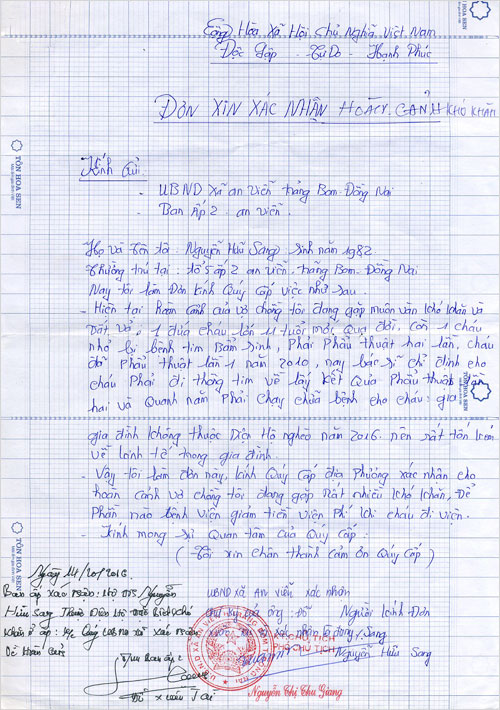 Cộng Hòa Xã Hội Chủ Nghĩa Việt Nam
Độc Lập - Tự Do - Hạnh Phúc
ĐƠN XIN XÁC NHẬN HOÀN CẢNH KHÓ KHĂN
Kính Gửi
- UBND Xã an Viễn trảng Bom - Đồng Nai
- Ban Ấp 2 - an viễn.
Họ và tên tôi: Nguyễn Hữu Sang sinh năm 1982
Thường trú tại: tổ 5 ấp 2 an viễn. trảng Bom - Đồng Nai
Nay tôi làm Đơn kính Quý Cấp việc như sau
- Hiện tại hoàn cảnh của vợ chồng tôi đang gặp muôn vàn khó khăn và
vất vả, 1 đứa cháu lớn 11 tuổi mới qua đời, còn 1 cháu
nhỏ bị bệnh tim Bẩm sinh, Phải Phẫu thuật hai lần, cháu
đã Phẫu thuật lần 1 năm 2010, nay bác sĩ chỉ định cho
cháu Phải đi thông tim về lấy kết Quả Phẫu thuật lần
hai và Quanh năm Phải chạy chữa bệnh cho cháu: gia
gia đình không thuộc Diện Hộ nghèo năm 2016. nên rất tốn kém
về kinh tế trong gia đình.
- Vậy tôi làm đơn này, kính Quý Cấp địa Phương xác nhận cho
hoàn cảnh vợ chồng tôi đang gặp rất nhiều khó khăn, Để
Phần nào bệnh viện giảm tiền viện Phí khi cháu đi viện.
- Kính mong sự Quan tâm của Quý Cấp.
(Tôi xin chân thành cảm ơn Quý Cấp)
Ngày 14/10/2016
Ban ấp xác nhận: Nguyễn
Hữu Sang
UBND xã An Viễn xác nhận
Người kính Đơn
PHÓ CHỦ TỊCH
Nguyễn Hữu Sang
T/M Ban ấp 2
Nguyễn Thị Thu Giang
TÔN HOA SEN
TÔN HOA SEN
TÔN HOA SEN